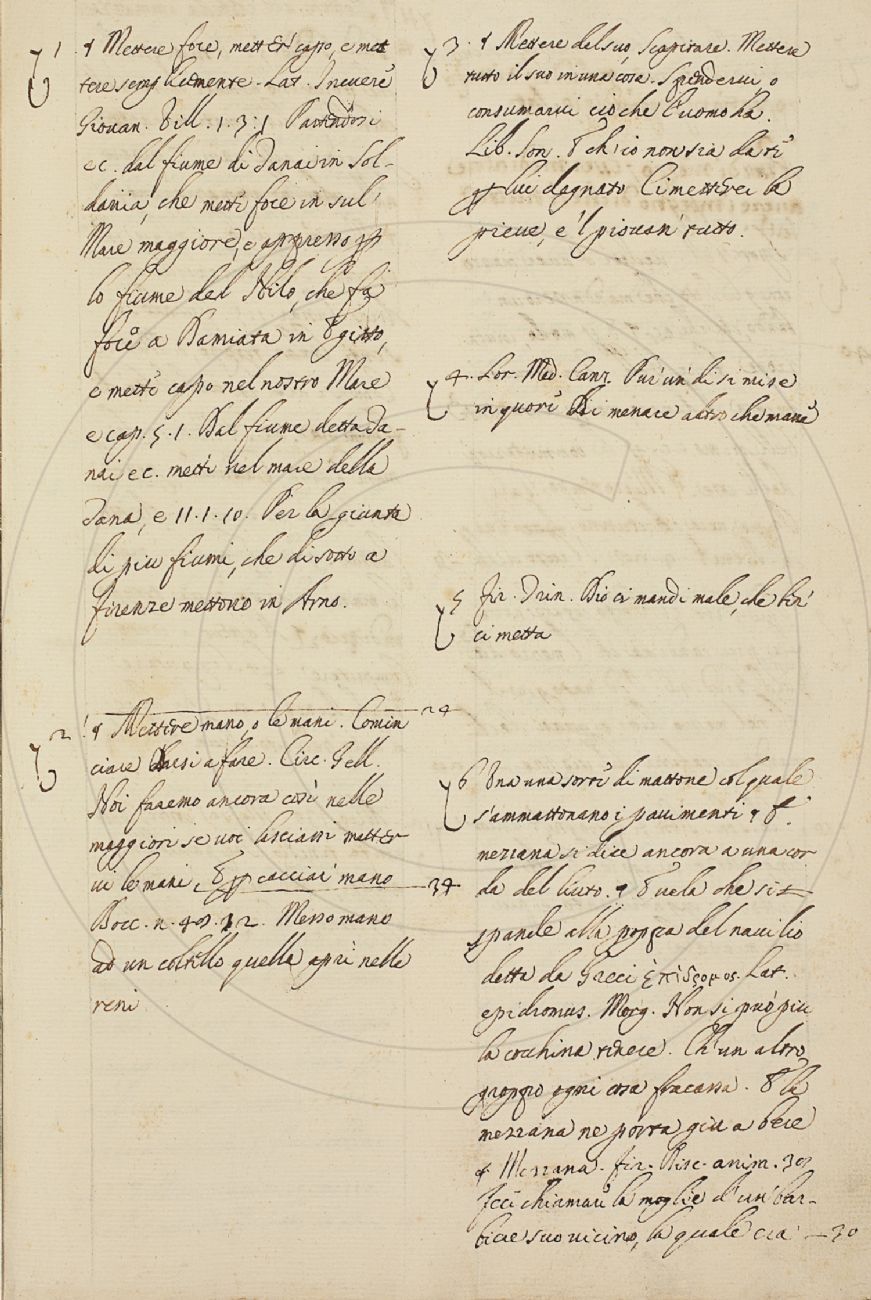 1. ¶ Mettere foce, metter capo, e met
tere semplicemente. Lat. Inuere
Giouan. Vill. 1. 3. 1 Partendosi
ec. dal fiume di Tanai in Sol-
dania, che mette foce in sul
Mare maggiore, e appresso per
lo fiume del Nilo, che fa
foce a Damiata in Egitto,
e mette capo nel nostro Mare
e cap. 5. 1. Dal fiume detta Ta-
nai ec. mette nel mare della
Tana, e 11. 1. 10. Per la giunta
di piu fiumi, che di sotto a
Firenze mettono in Arno.
2. ¶ Mettere mano, o le mani. Comin 24
ciare Darsi a fare. Circ. Gell.
Noi faremo ancora così nelle
maggiori se voi lasciassi metter
ui le mani. E per cacciar mano 34
Bocc. n. 12. Messo mano
ad un coltello quella aprì nelle
reni
3. ¶ Mettere del suo, Scapitare. Mettere
tutto il suo in una cosa. Spenderui o
consumarui ciò che l'uomo ha.
Lib. Son. E ch'io non sia da te
per lui degnato Ci metterei la
pieue, e 'l piouan' tutto.
4. Lor. Med. Canz. Pur un' dì si mise
in quore Di menare altro che mane
5 Fir. Trin. Dio ci mandi male, che ben'
ci metta
6 Una una sorte di mattone col quale
s'ammattonano i pauimenti ¶ E
mezzana si dice ancora a una cor
da del liuto. ¶ E uela che si
spande alla poppa del nauilio
detta da Greci ἐπίδρομος. Lat.
epidromus. Morg. Non si può piu
la cocchina tenere. Ch' un altro
groppo ogni cosa fracassa. E la
mezzana ne porta giu a bere
¶ Mezzana. Fir. Disc. anim. 30
Fece chiamare la moglie d'un' bar-
biere suo uicino, la quale era 30